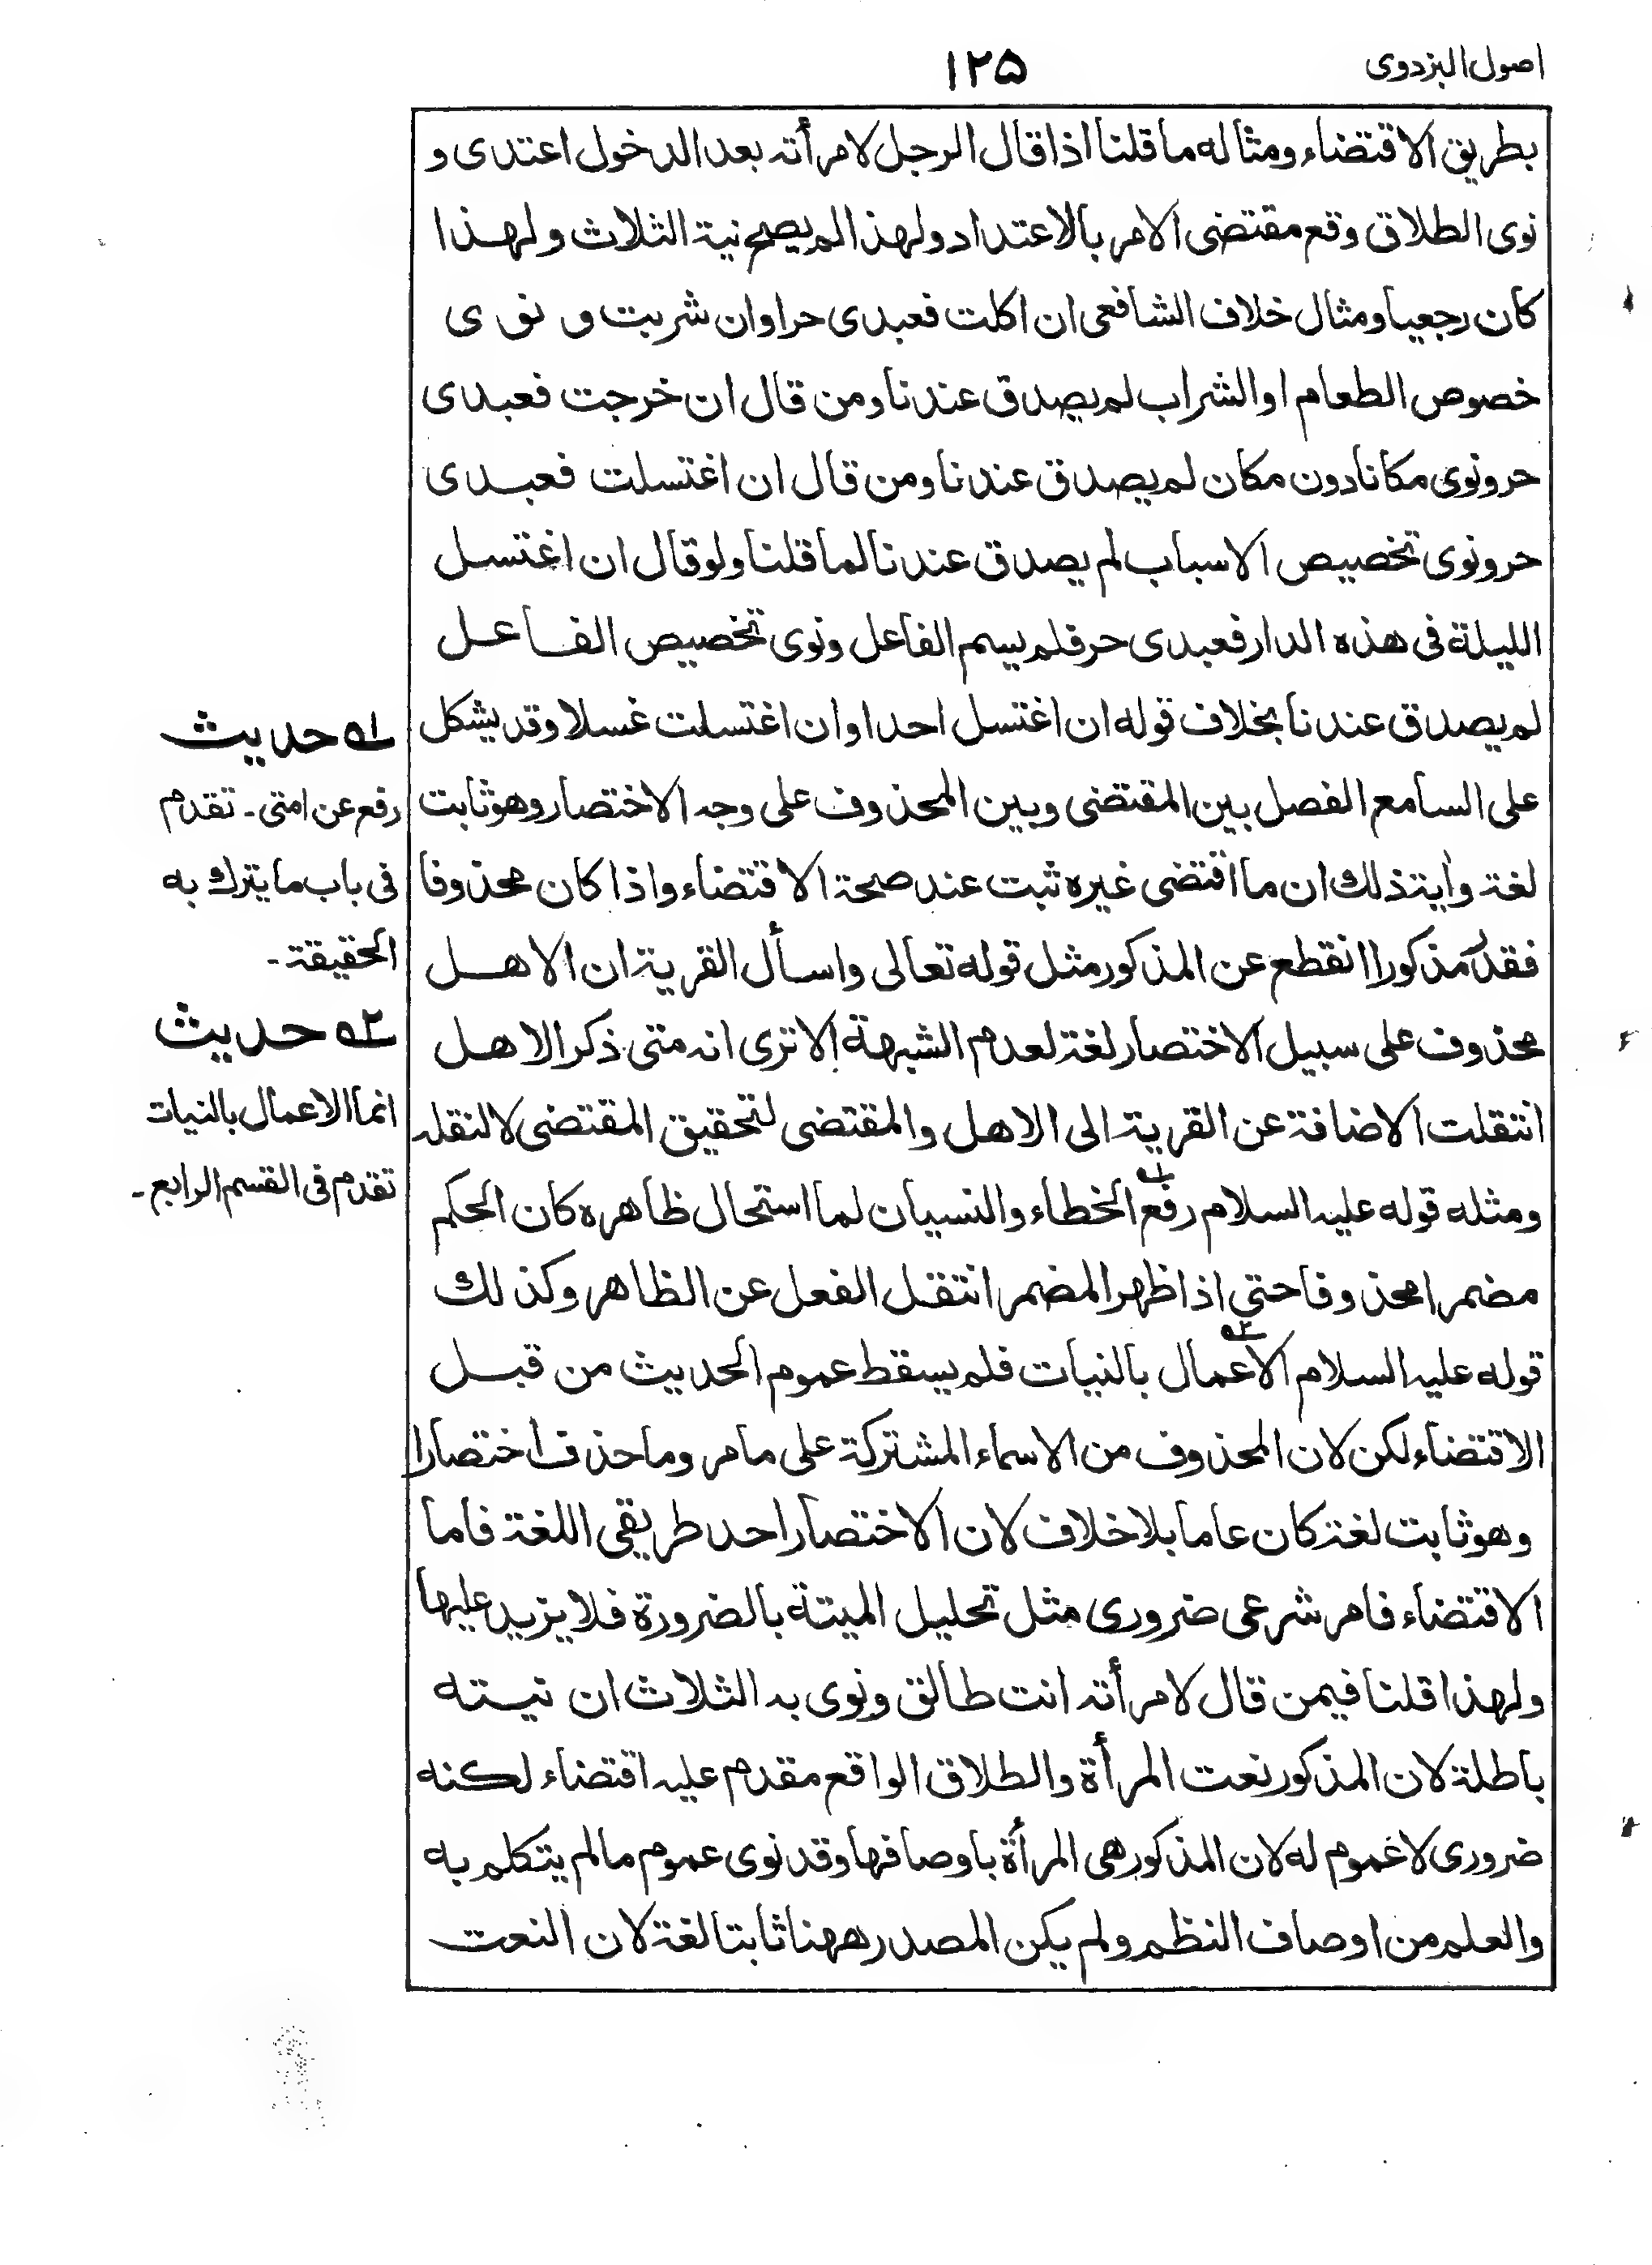 اصول البزدوی
۱۲۵
بطريق الاقتضاء ومثاله ما قلنا اذا قال الرجل لامرأته بعد الدخول اعتدى و
نوى الطلاق وقع مقتضى الامر بالاعتداد ولهذا لم يصح نية الثلاث ولهذا
كان رجعيا ومثال خلاف الشافعى ان اكلت فعبدى حر او ان شربت و نوى
خصوص الطعام او الشراب لم يصدق عندنا ومن قال ان خرجت فعبدى
حر ونوى مكانا دون مكان لم يصدق عندنا ومن قال ان اغتسلت فعبدى
حر ونوى تخصيص الاسباب لم يصدق عندنا لما قلنا ولو قال ان اغتسل
الليلة فى هذه الدار فعبدى حر فلم يسم الفاعل ونوى تخصيص الفاعل
لم يصدق عندنا بخلاف قوله ان اغتسل احد او ان اغتسلت غسلا وقد يشكل
على السامع الفصل بين المقتضى وبين المحذوف على وجه الاختصار وهو ثابت
لغة واية ذلك ان ما اقتضى غيره ثبت عند صحة الاقتضاء واذا كان محذوفا
فقدر مذكورا انقطع عن المذكور مثل قوله تعالى واسأل القرية ان الاهل
محذوف على سبيل الاختصار لغة لعدم الشبهة الا ترى انه متى ذكر الاهل
انتقلت الاضافة عن القرية الى الاهل والمقتضى لتحقيق المقتضى لا لنقله
ومثله قوله عليه السلام رفع۱ الخطاء والنسيان لما استحال ظاهره كان الحكم
مضمرا محذوفا حتى اذا ظهر المضمر انتقل الفعل عن الظاهر وكذلك
قوله عليه السلام الاعمال۲ بالنيات فلم يسقط عموم الحديث من قبل
الاقتضاء لكن لان المحذوف من الاسماء المشتركة على ما مر وما حذف اختصارا
وهو ثابت لغة كان عاما بلا خلاف لان الاختصار احد طريقى اللغة فاما
الاقتضاء فامر شرعى ضرورى مثل تحليل الميتة بالضرورة فلا يزيد عليها
ولهذا قلنا فيمن قال لامرأته انت طالق ونوى به الثلاث ان نيته
باطلة لان المذكور نعت المرأة والطلاق الواقع مقدم عليه اقتضاء لكنه
ضرورى لا عموم له لان المذكور هى المرأة باوصافها وقد نوى عموم ما لم يتكلم به
والعلم من اوصاف النظم ولم يكن المصدر ههنا ثابتا لغة لان النعت
۱ حديث
رفع عن امتى ۔ تقدم
فى باب ما يترك به
الحقيقة ۔
۲ حديث
انما الاعمال بالنيات
تقدم فى القسم الرابع ۔